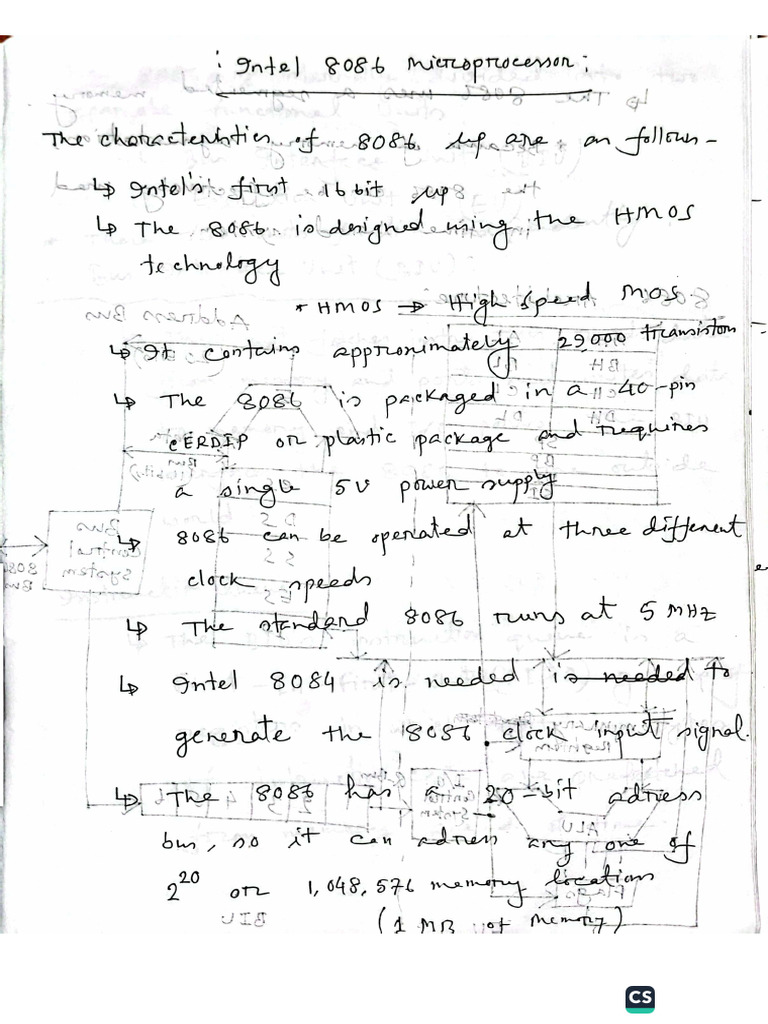 : Intel 8086 Microprocessor :
The characteristics of 8086 μp are as follows -
↳ Intel's first 16 bit μp
↳ The 8086 is designed using the HMOS
technology
* HMOS → High speed MOS
↳ It contains approximately 29,000 transistors
↳ The 8086 is packaged in a 40-pin
CERDIP or plastic package and requires
a single 5V power supply
↳ 8086 can be operated at three different
clock speeds
↳ The standard 8086 runs at 5 MHz
↳ Intel 8084 is needed is needed to
generate the 8086 clock input signal.
↳ The 8086 has a 20-bit adress
bus, so it can adress any one of
2^20 or 1,048,576 memory locations
(1 MB of memory)
CS